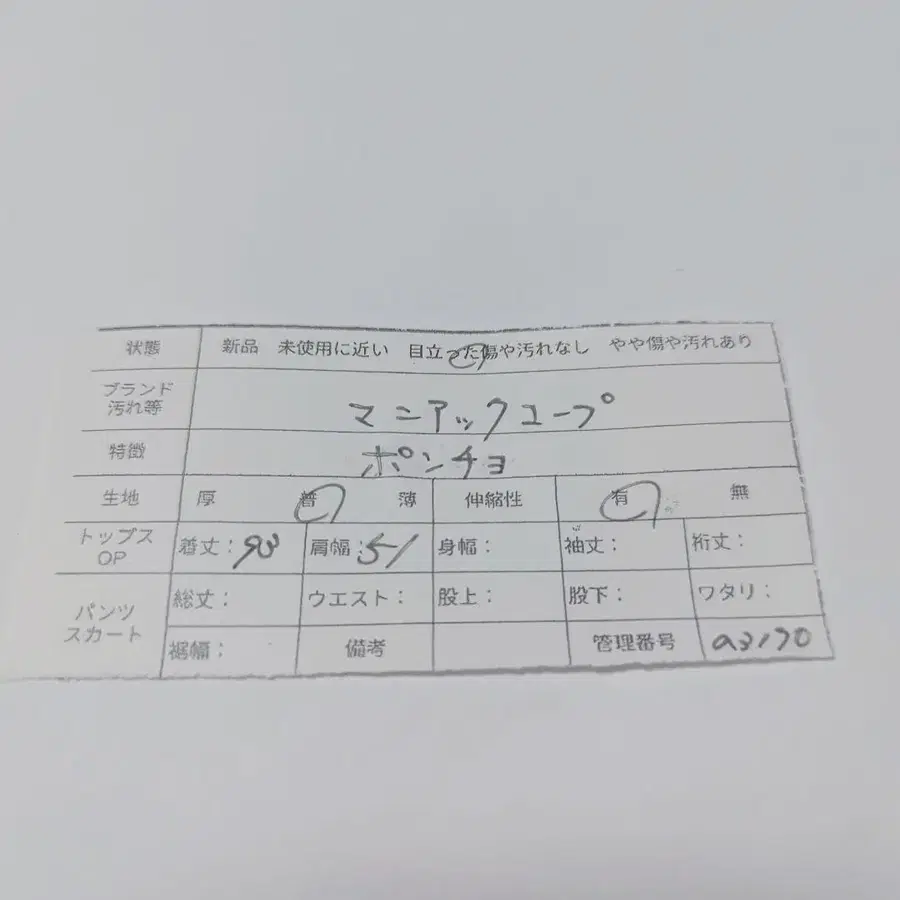 状態 新品 未使用に近い 目立った傷や汚れなし やや傷や汚れあり
ブランド
汚れ等 マニアックコープ
特徴 ポンチョ
生地 厚 普 薄 伸縮性 有 無
トップス
OP 着丈: 肩幅:51 身幅: 袖丈: 裄丈:
パンツ
スカート 総丈: ウエスト: 股上: 股下: ワタリ:
裾幅: 備考 管理番号 a3170